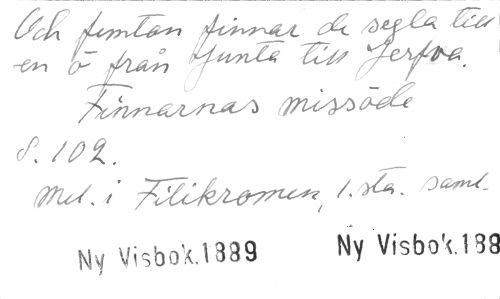 Och femton finnar de segla till
en ö från Junta till Jerfva.
Finnarnas missöde
S. 102.
Mel. i Filikromen, 1.sta. saml.
Ny Visbok.1889 Ny Visbok.188